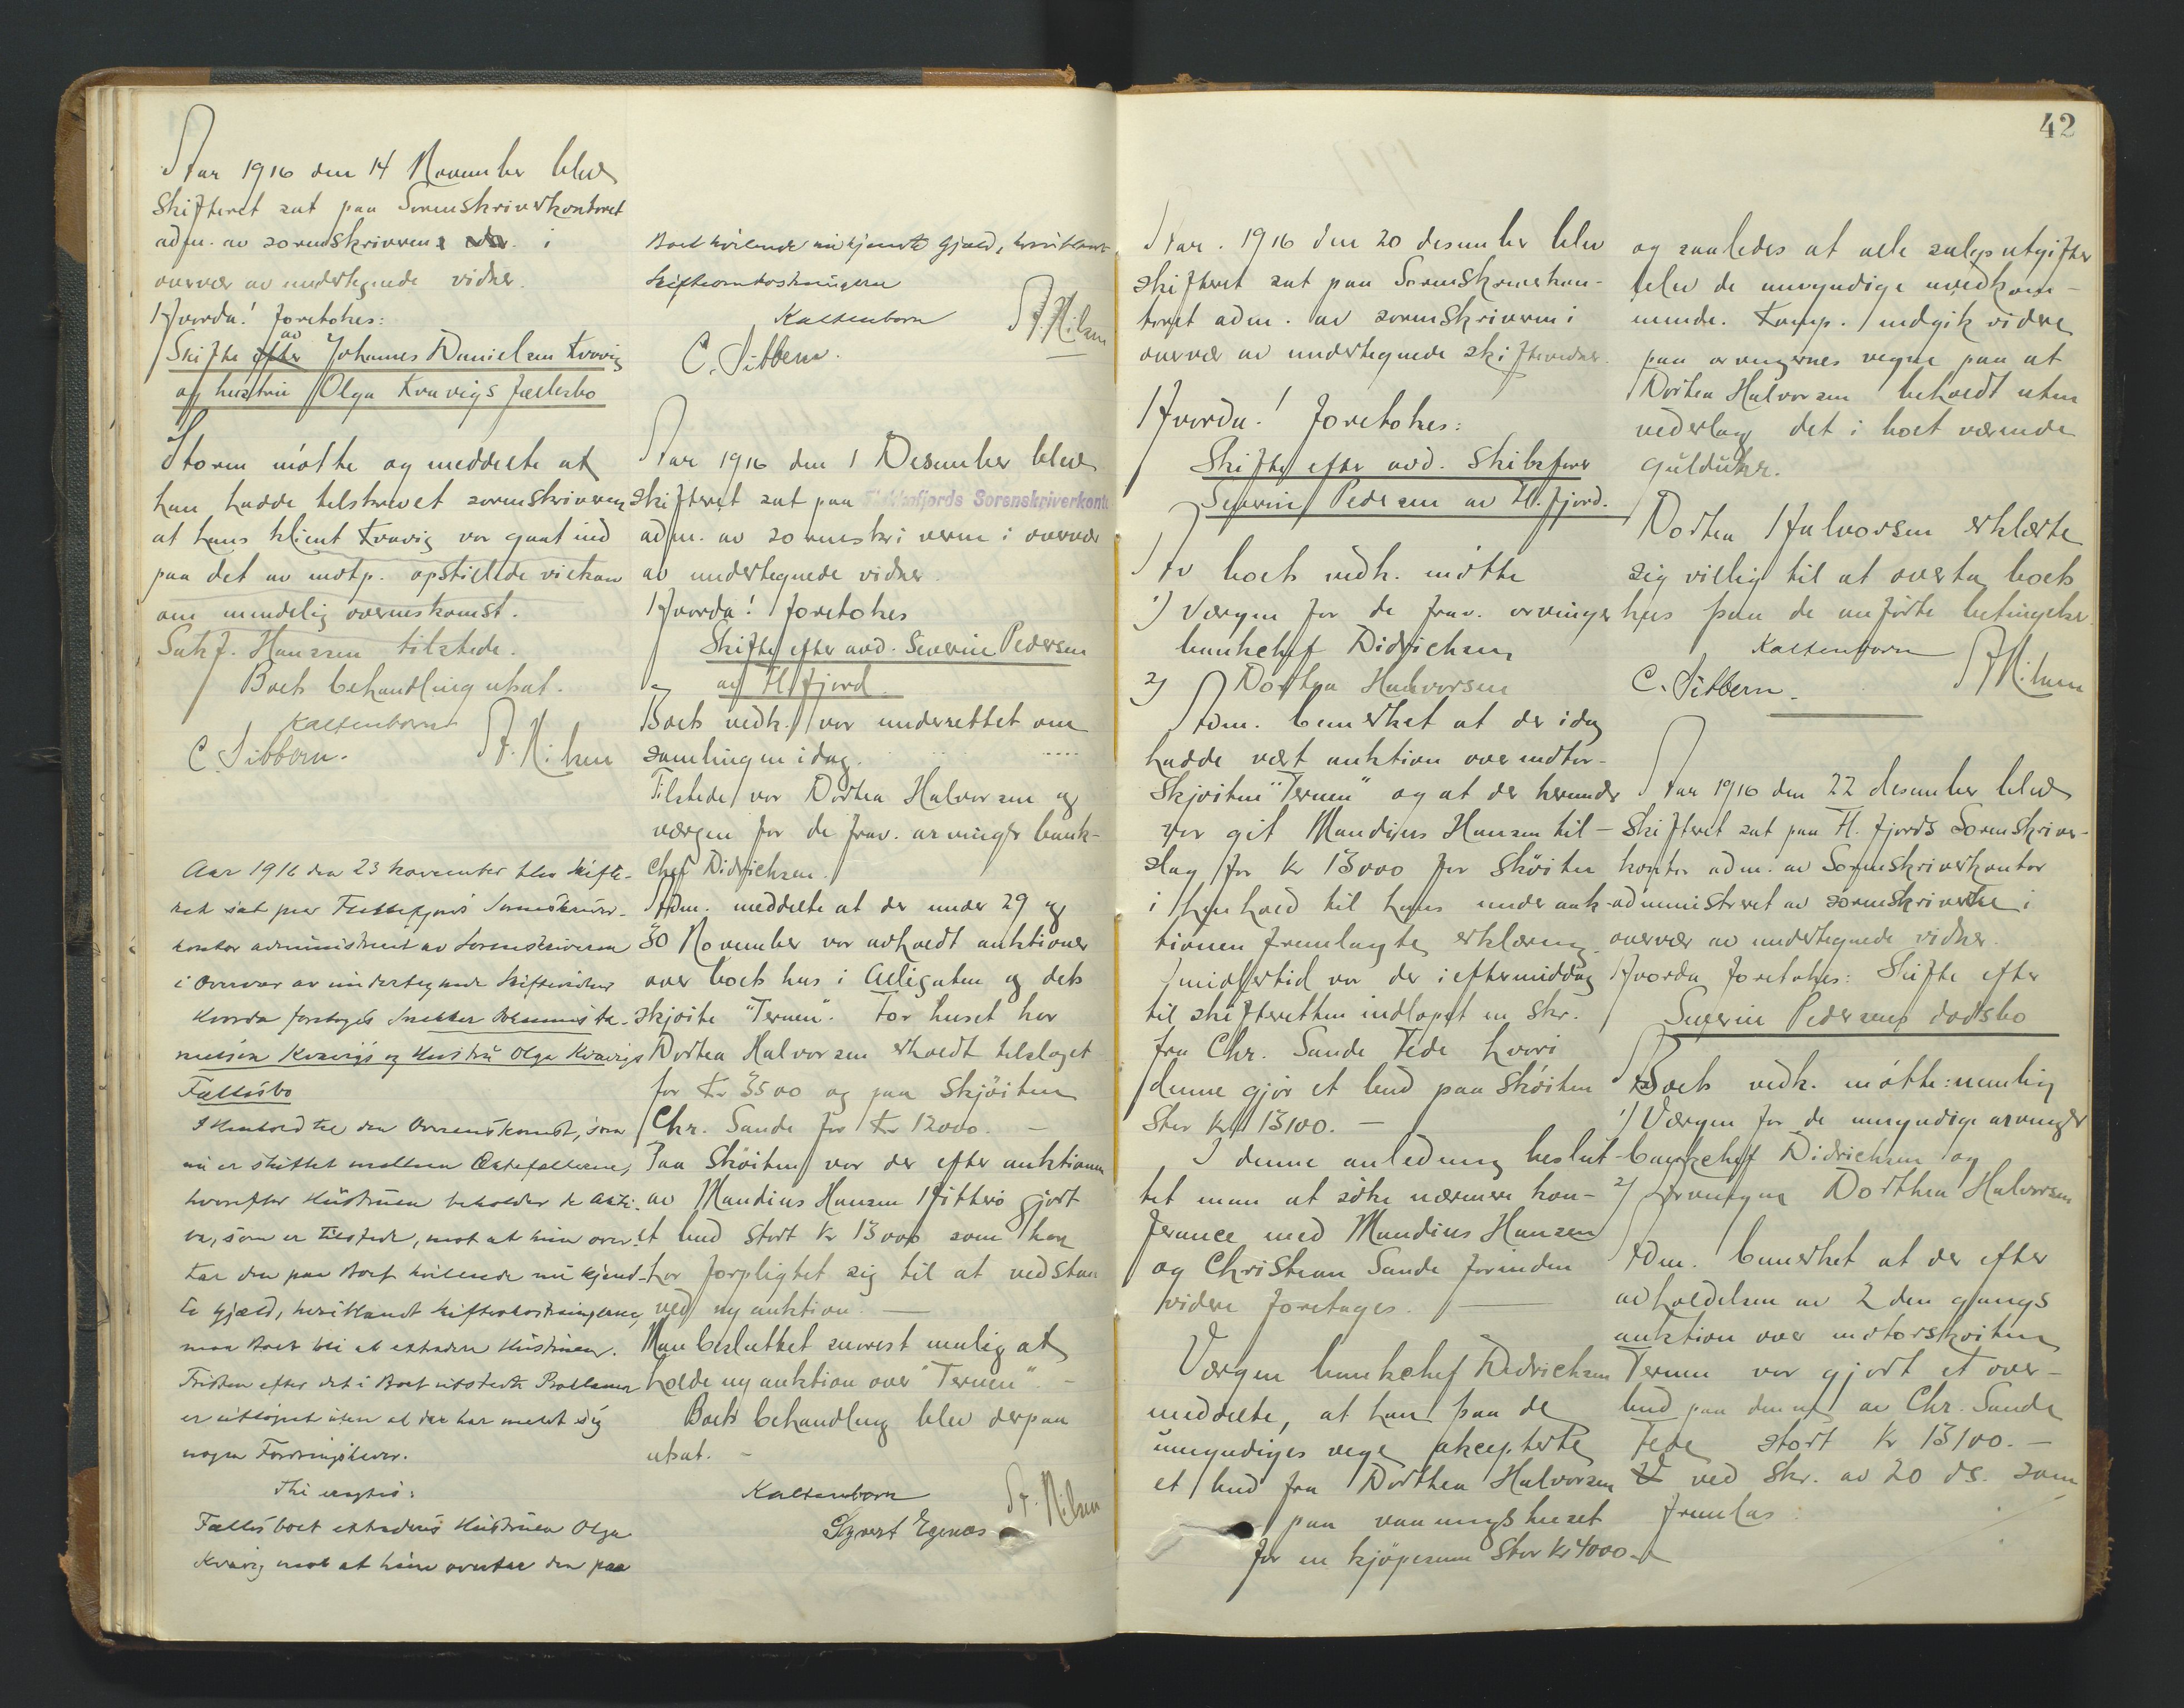 Aar 1916 den 14 November blev
Skifteret sat paa Sorenskriverkontoret
adm. av sorenskriveren i
overvær av undertegnede vidner.
Hvorda! foretokes:
Skifte av Johannes Danielsen Kvavig
og hustru Olga Kvavigs fællesbo
Storm møtte og meddelte at
han hadde tilskrevet sorenskriveren
at hans klient Kvavig var gaat ind
paa det av motp. opstillede vilkaar
om mindelig overenskomst.
Sakf. Hanssen tilstede.
Boets behandling utsat.
Kaltenborn
C. Sibbern. St. Nilsen
Aar 1916 den 23 November blev skifte-
ret sat paa Flekkefjords Sorenskriver-
kontor administreret av Sorenskriveren
i Overvær av undertegnede Skiftevidner
Hvorda foretoges Snekker Johannes Da-
nielsen Kvavigs og Hustru Olga Kvavigs
Fællesbo
I Henhold til den Overenskomst, som
nu er sluttet mellem Ægtefællerne,
hvorefter Hustruen beholder de Akti-
va, som er tilstede, mot at hun over-
tar den paa Boet hvilende nu kjend-
te Gjæld, heriblandt Skifteomkostningerne,
maa Boet bli at extradere Hustruen.
Fristen efter det i Boet utstedte Proklama
er utløpet uten at der har meldt sig
nogen Fordringshaver.
Thi eragtes:
Fællesboet extraderes Hustruen Olga
Kvavig mot at hun overtar den paa
Boet hvilende nu kjendte Gjæld, heriblandt
Skifteomkostningerne
Kaltenborn
C. Sibbern. St. Nilsen
Aar 1916 den 1 Desember blev
skifteret sat paa Flekkefjords Sorenskriverkontor
adm. av sorenskriveren i overvær
av undertegnede vidner.
Hvorda! foretokes
Skifte efter avd. Severin Pedersen
av H.fjord.
Boets vedk. var underrettet om
samlingen idag.
Tilstede var Dorthea Halvorsen og
værgen for de frav. arvinger bank-
chef Didrichsen.
Adm. meddelte at der under 29 og
30 November var avholdt auktioner
over boets hus i Alligaten og dets
skjøite "Ternen". For huset har
Dorthea Halvorsen erholdt tilslaget
for Kr 3500 og paa Skjøiten
Chr. Sande for Kr 12000. —
Paa Skøiten var der efter auktionen
av Mandius Hansen Hitterø gjort
et bud stort Kr 13000 som han
har forpligtet sig til at vedstaa
ved ny auktion. —
Man besluttet snarest mulig at
holde ny auktion over "Ternen". —
Boets behandling blev derpaa
utsat. —
Kaltenborn
Sigvart Egenes St. Nilsen
42
Aar. 1916 den 20 desember blev
skifteret sat paa Sorenskriverkon-
toret adm. av sorenskriveren i
overvær av undertegnede skiftevidner.
Hvorda! foretokes:
Skifte efter avd. Skibsfører
Severin Pedersen av H.fjord.
Av boets vedk. møtte
1) Værgen for de frav. arvinger
bankchef Didrichsen
2) Dorthea Halvorsen
Adm. bemerket at der idag
hadde vært auktion over motor-
skjøiten "Ternen" og at der herunder
var git Mandius Hansen til-
slag for Kr 13000 for Skøiten
i henhold til hans under auk-
tionen fremlagte erklæring.
Imidlertid var der i eftermiddag
til skifteretten indløpet en Skr.
fra Chr. Sande Fede hvori
denne gjør et bud paa Skøiten
Stor Kr 13100. —
I denne anledning beslut-
tet man at søke nærmere kon-
ferance med Mandius Hansen
og Christian Sande forinden
videre foretages. —
Værgen bankchef Didrichsen
meddelte, at han paa de
umyndiges vegne aksepterte
et bud fra Dorthea Halvorsen
paa vaaningshuset
for en kjøpesum Stor Kr 4000.—
og saaledes at alle salgsutgifter
blev de umyndige uvedkom-
mende. Komp. indgik videre
paa arvingernes vegne paa at
Dorthea Halvorsen beholdt uten
vederlag det i boet værende
gulduhr.
Dorthea Halvorsen erklærte
sig villig til at overta boets
hus paa de anførte betingelser.
Kaltenborn
C. Sibbern. St. Nilsen
Aar 1916 den 22 desember blev
Skifteret sat paa H.fjords Sorenskriver-
kontor adm. av Sorenskriverkontor
administreret av sorenskriveren i
overvær av undertegnede vidner.
Hvorda foretokes: Skifte efter
Severin Pedersens dødsbo
Boets vedk. møtte: nemlig
1) Værgen for de umyndige arvinger
bankchef Didrichsen og
2) Arvingen Dorthea Halvorsen
Adm. bemerket at der efter
avholdelsen av 2den gangs
auktion over motorskøiten
Ternen var gjort et over-
bud paa denne av Chr. Sande
Fede stort Kr 13100. —
ved Skr. av 20 ds. som
fremlas: